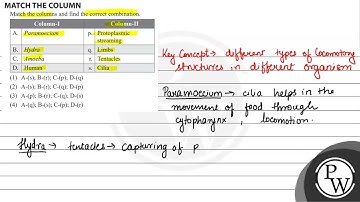 MATCH THE COLUMN
Match the columns and find the correct combination.
Column-I Column-II
A. Paramoecium p. Protoplasmic streaming
B. Hydra q. Limbs
C. Amoeba r. Tentacles
D. Human s. Cilia
(1) A-(s); B-(r); C-(p); D-(q)
(2) A-(p); B-(r); C-(s); D-(q)
(3) A-(p); B-(r); C-(q); D-(s)
(4) A-(q); B-(s); C-(r); D-(p)
Key Concept → different types of locomotory
structures in different organism
Paramoecium → cilia helps in the
movement of food through
cytopharynx, locomotion.
Hydra → tentacles → capturing of p
PW